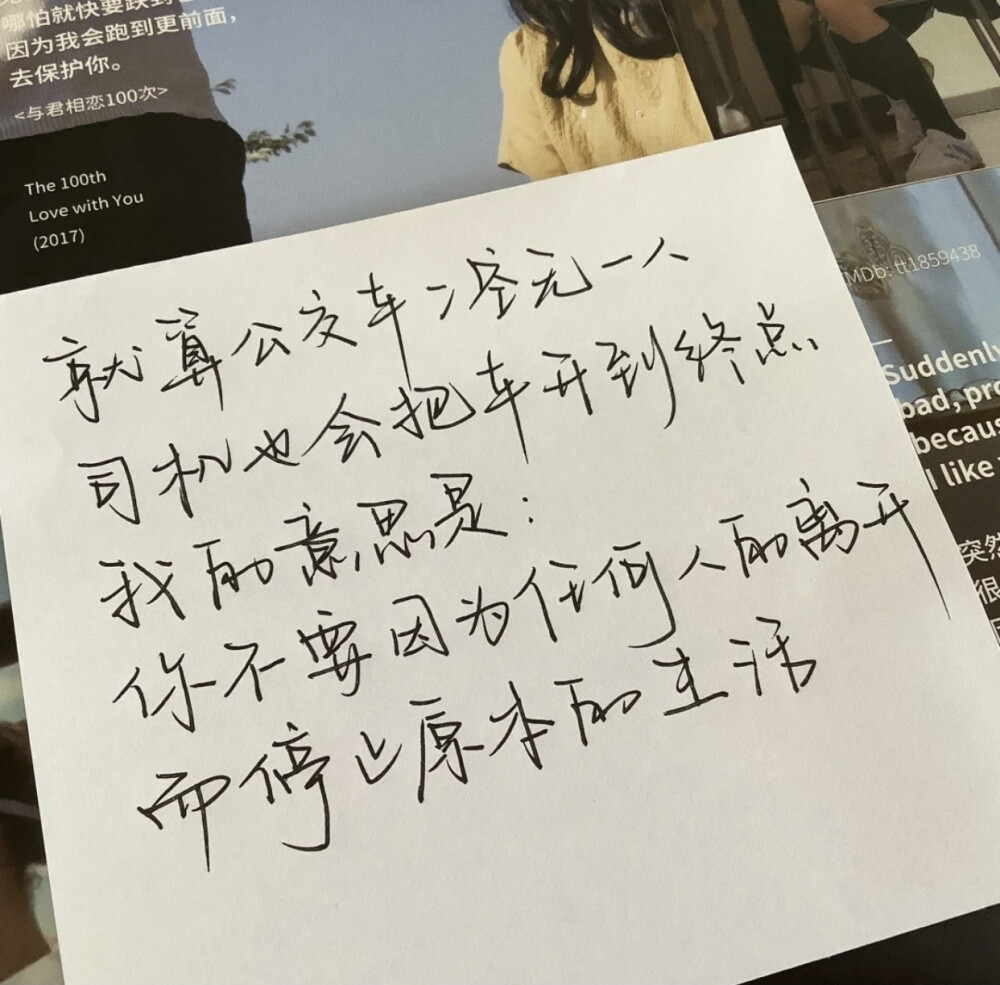 哪怕就快要跌到
因为我会跑到更前面，
去保护你。
<与君相恋100次>
The 100th
Love with You
(2017)
MDb: tt1859438
Suddenly
bad, pro
becaus
I like
突然
很
就算公交车空无一人
司机也会把车开到终点
我的意思是：
你不要因为任何人的离开
而停止原本的生活